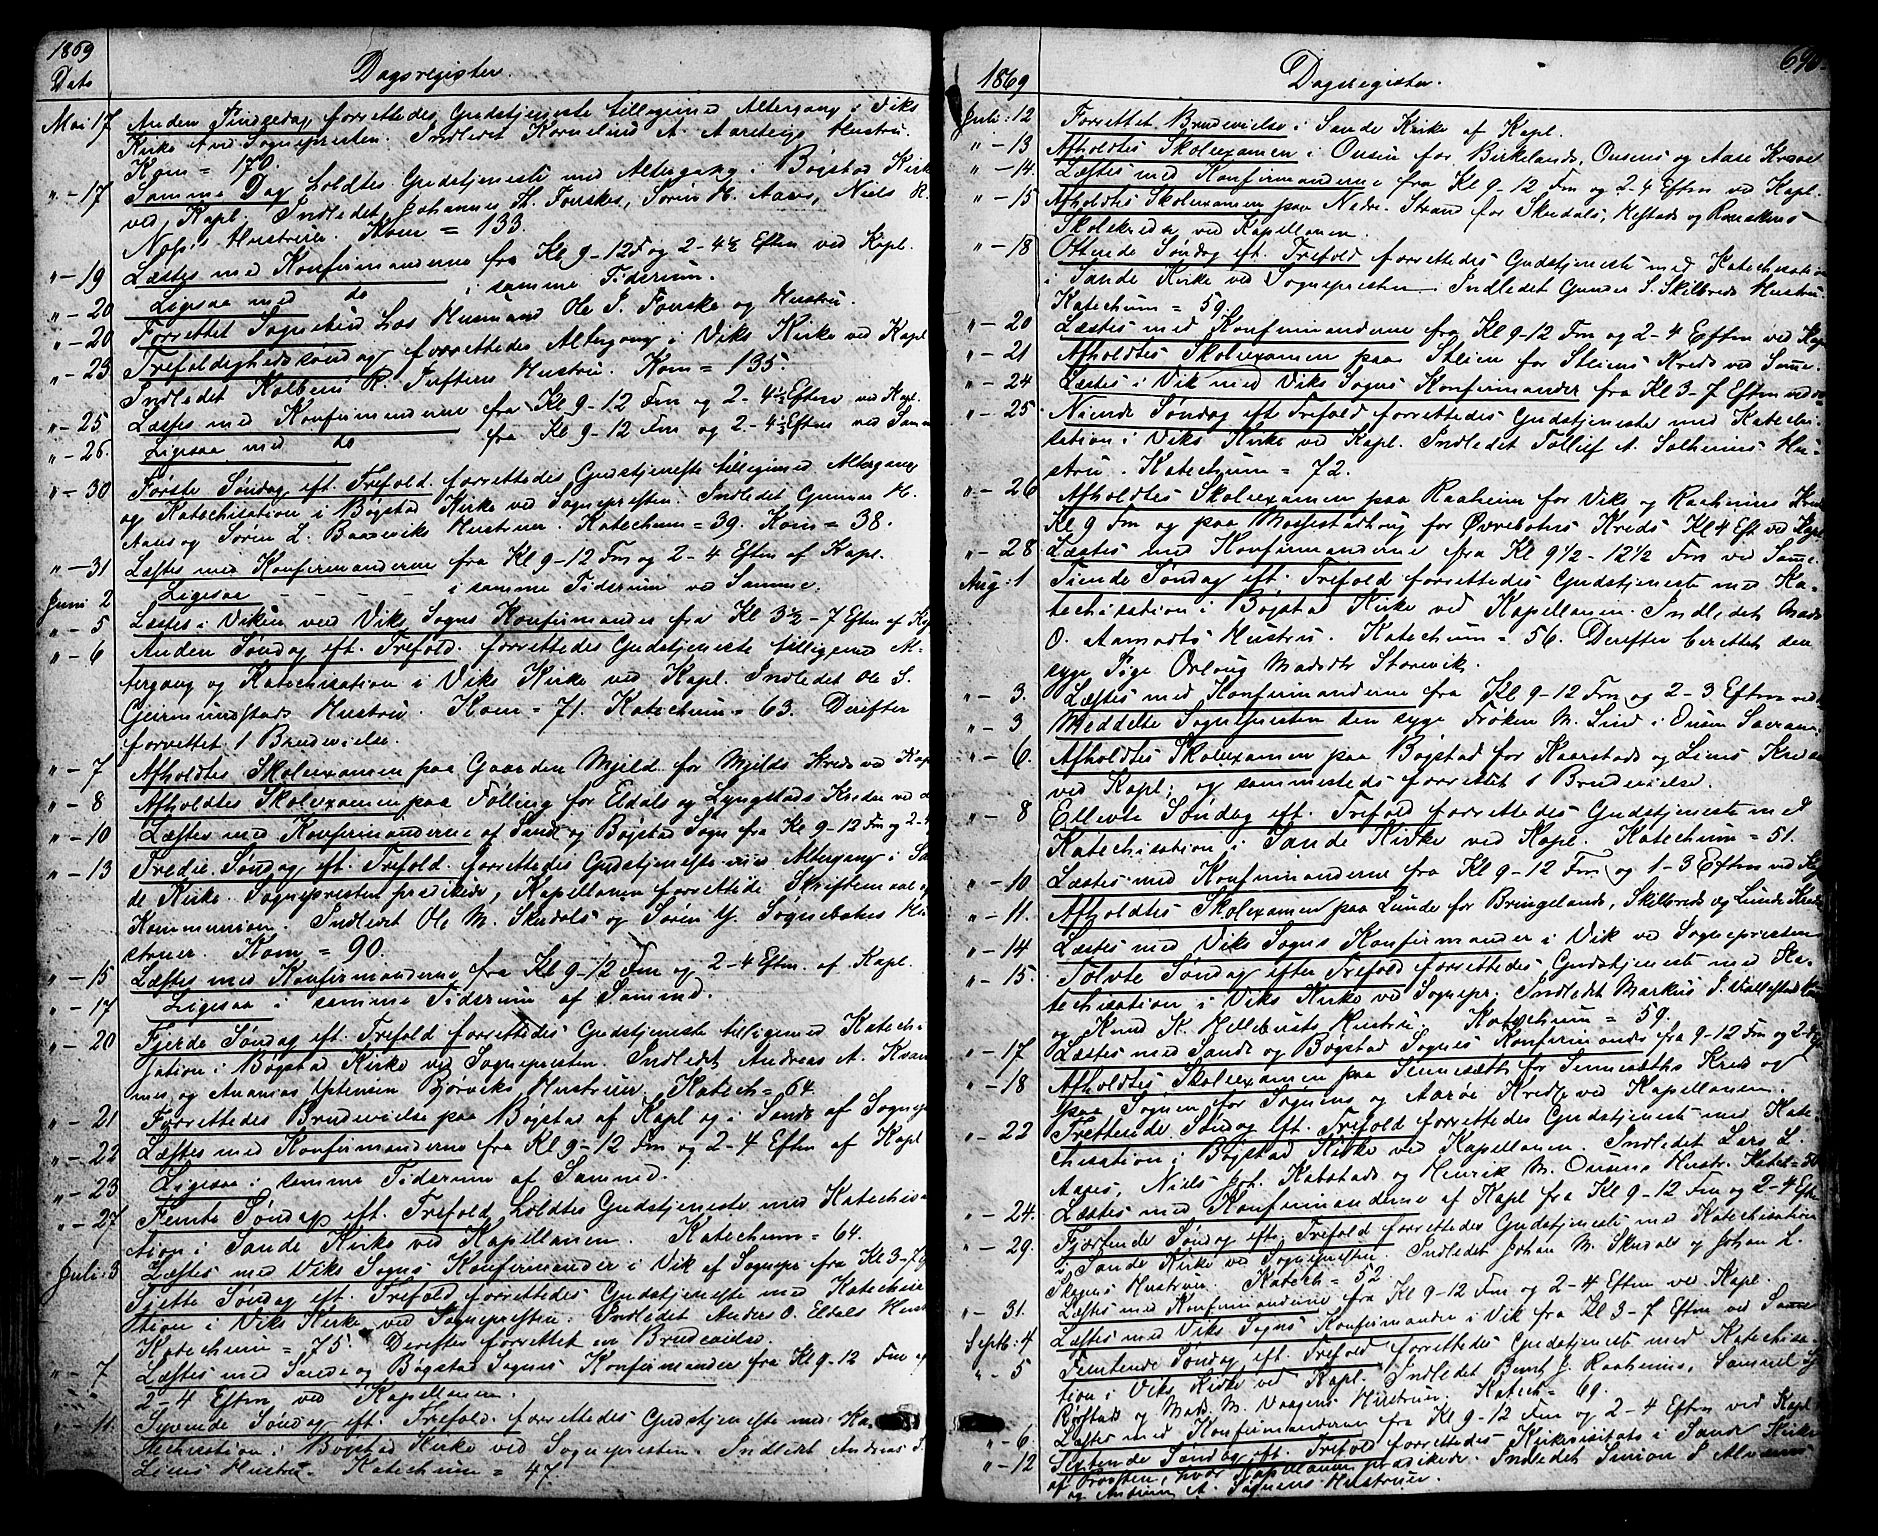 1869
Dato
Dagsregister.
Mai 17 Anden Pindsedag forrettedes Gudstjeneste tilligemed Altergang i Viks
Kirke ved Sognepresten. Indledet Kornelius A. Aarbergs Hustru.
Kom = 170.
" - 17 Samme Dag holdtes Gudstjeneste med Altergang i Bygstad Kirke
ved Kapl. Indledet Johannes Th. Fonskes, Søren H. Aases, Niels R.
Hustruer. Kom = 133.
" - 19 Læstes med Konfirmanderne fra Kl 9-12 F og 2-4½ Eftm ved Kapl.
" - 20 Ligesaa med do i samme Tidsrum.
" - 20 Forrettet Sognebud hos Husmand Ole J. Fonske og Hustru.
" - 23 Trefoldighedssøndag forrettedes Altergang i Viks Kirke ved Kapl
Indledet Kolbens R. Tuftens Hustru. Kom = 135.
" - 25 Læstes med Konfirmanderne fra Kl 9-12 Fm og 2-4½ Eftm ved Kapl.
" - 26. Ligesaa med do fra Kl 9-12 Fm og 2-4½ Eftm ved Samm
" - 30 Første Søndag eft. Trefold. forrettedes Gudstjeneste tilligemed Altergang
og Katechisation i Bygstad Kirke ved Sognepresten. Indledet Gunnar H.
Aases og Søren L. Hustruer. Katechum = 39. Kom = 38.
" - 31 Læstes med Konfirmanderne fra Kl 9-12 Fm og 2-4 Eftm af Kapl.
Juni 2 Ligesaa - - - - - i samme Tidsrum ved Samme.
" - 5 Læstes i Viken ved Viks Sogns Konfirmander fra Kl 3½-7 Eftm af Kp
" - 6 Anden Søndag eft. Trefold. forrettedes Gudstjeneste tilligemed Al-
tergang og Katechisation i Viks Kirke ved Kapl. Indledet Ole S.
Geirmundstads Hustru. Kom = 71. Katechum = 63. Derefter
forrettet 1 Brudevielse.
" - 7 Afholdtes Skoleexamen paa Gaarden Mjeld for Mjelds Kreds ved Kapl
" - 8 Afholdtes Skoleexamen paa Følling for Eldals og Lyngstads Kredse ved
" - 10 Læstes med Konfirmanderne af Sande og Bygstad Sogn fra Kl 9-12 Fm og 2-4
" - 13 Tredie Søndag eft. Trefold. forrettedes Gudstjeneste med Altergang i San
de Kirke. Sognepresten predikede, Kapellanen forrettede Skriftemaal og
Kommunion. Indledet Ole M. Skudals og Søren G. Hu
struer. Kom = 90.
" - 15 Læstes med Konfirmanderne fra Kl 9-12 Fm og 2-4 Eftm. af Kapl.
" - 17 Ligesaa i samme Tidsrum af Samme.
" - 20 Fjerde Søndag eft. Trefold forrettedes Gudstjeneste tilligemed Katechi-
sation i Bygstad Kirke ved Sognepresten. Indledet Andreas A. Kvam
mes og Ananias Mortensen Hustruer. Katech = 64.
" - 21 Forrettedes Brudevielse paa Bygstad af Kapl og i Sande af Sognepr
" - 22 Læstes med Konfirmanderne fra Kl 9-12 Fm og 2-4 Eftm af Kapl
" - 23 Ligesaa i samme Tidsrum af Samme.
" - 27 Femte Søndag eft. Trefold holdtes Gudstjeneste med Katechisa
tion i Sande Kirke ved Kapellanen. Katechum = 64.
Juli 3 Læstes med Viks Sogns Konfirmander i Vik af Sognepr fra Kl 3-7
Sjette Søndag eft. Trefold forrettedes Gudstjeneste med Katechisa
tion i Viks Kirke ved Sognepresten. Indledet Anders O. Eldals Hustr
Katechum = 75. Derefter forrettet en Brudevielse.
" - 7 Læstes med Sande og Bygstad Sognes Konfirmander fra Kl 9-12 Fm og
2-4 Eftm ved Kapellanen.
" - 11. Syvende Søndag eft. Trefold. forrettedes Gudstjeneste med Ka-
techisation i Bygstad Kirke ved Sognepresten. Indledet Andreas
Liens Hustru. Katechum = 47.
690.
1869
Dagsregister.
Juli 12 Forrettet Brudevielse i Sande Kirke af Kapl.
" - 13 Afholdtes Skoleexamen i Ousen for Birkelands, Ousens og Aase Kredse
" - 14. Læstes med Konfirmanderne fra Kl 9-12 Fm og 2-4 Eftm ved Kapl.
" - 15 Afholdtes Skoleexamen paa Nedre Strand for Skudals, Hestads og
Skolekredse ved Kapellanen.
" - 18 Ottende Søndag eft. Trefold forrettedes Gudstjeneste med Katechisation
i Sande Kirke ved Sognepresten. Indledet Gunder S. Skilbreds Hustru.
Katechum = 59.
" - 20 Læstes med Konfirmanderne fra Kl 9-12 Fm og 2-4 Eftm ved Kapl
" - 21 Afholdtes Skoleexamen paa Steien for Steiens Kreds ved Samme.
" - 24 Læstes i Vik med Viks Sogns Konfirmander fra Kl 3-7 Eftm ved
" - 25 Niende Søndag eft Trefold forrettedes Gudstjeneste med Katechi-
sation i Viks Kirke ved Kapl. Indledet Tollef A. Solheims Hu-
stru. Katechum = 72.
" - 26 Afholdtes Skoleexamen paa Raaheim for Viks og Raaheims Kreds
Kl 9 Fm og paa for Øvrebotns Kreds Kl 4 Eft ved Kapl
" - 28 Læstes med Konfirmanderne fra Kl 9½-12½ Fm ved Samme
Aug: 1 Tiende Søndag eft. Trefold forrettedes Gudstjeneste med Ka-
techisation i Bygstad Kirke ved Kapellanen. Indledet Mads
O. Aamodts Hustru. Katechum = 56. Derefter berettet den
syge Pige Orloug Madsdtr Storevik.
" - 3. Læstes med Konfirmanderne fra Kl 9-12 Fm og 2-3 Eftm ved
" - 3 Meddelte Sognepresten den syge Frøken M. Lind i Ousen Sacram.
" - 6. Afholdtes Skoleexamen paa Bygstad for Kaarstads og Liens Kredse
ved Kapl; og sammesteds forrettet 1 Brudevielse.
" - 8 Ellevte Søndag eft. Trefold forrettedes Gudstjeneste med
Katechisation i Sande Kirke ved Kapl. Katechum = 51.
" - 10 Læstes med Konfirmanderne fra Kl 9-12 Fm og 1-3 Eftm ved Kapl
" - 11. Afholdtes Skolexamen paa Lunde for Bringelands, Skilbreds og Lunde Kredse
" - 14 Læstes med Viks Sogns Konfirmander i Vik ved Sognepresten
" - 15. Tolvte Søndag efter Trefold forrettedes Gudstjeneste med Ka-
techisation i Viks Kirke ved Sognepr. Indledet Markus J.
og Knud K. Hellebusts Hustru Katechum = 59.
" - 17 Læstes med Sande og Bygstad Sognes Konfirmande fra 9-12 Fm og 2-4
" - 18 Afholdtes Skoleexamen paa Sennesæth for Sennesæths Kreds og
paa Sognen for Sognens og Aarøi Kredse ved Kapellanen.
" - 22 Trettende Søndag eft. Trefold forrettedes Gudstjeneste med Kate-
chisation i Bygstad Kirke ved Kapellanen. Indledet Lars L.
Aases, Niels Joh. Kalstads og Henrik M. Ousens Hustr. Katech = 50
" - 24. Læstes med Konfirmanderne af Kapl fra Kl 9-12 Fm og 2-4 Eftm
" - 29. Fjortende Søndag efter Trefold forrettedes Gudstjeneste med Katechisation
i Sande Kirke ved Sognepresten. Indledet Johan M. Skudals og Johan L.
Skogens Hustruer. Katech = 52
" - 31. Læstes med Konfirmanderne fra Kl 9-12 Fm og 2-4 Eftm ved Kapl.
Septb: 4 Læstes med Viks Sogns Konfirmander i Vik fra Kl 3-7 Eftm ved Samme
" - 5 Femtende Søndag eft. Trefold forrettedes Gudstjeneste med Katechisa-
tion i Viks Kirke ved Kapl. Indledet Bernt J. Raaheims, Samuel
Rørstads og Mads M. Vaagens Hustruer. Katech = 69.
" - 6 Læstes med Konfirmanderne fra Kl 9-12 Fm og 2-4 Eftm ved Kapl.
" - 12 Sextende Søndag eft. Trefold forrettedes Kirkevisitats i Sande Kirke
af Provsten, hvor Kapellanen prædikede. Indledet Simon S
og Andreas A. Sognens Hustruer.